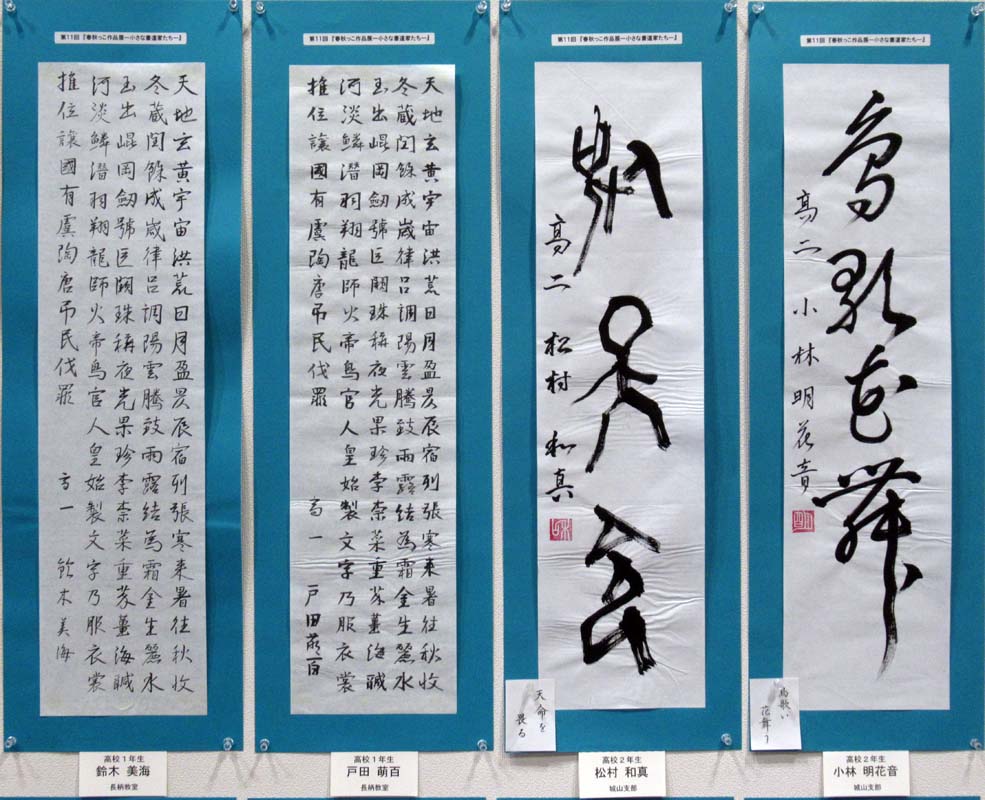 第11回 『春秋っこ作品展ー小さな書道家たちー』
天地玄黄宇宙洪荒日月盈昃辰宿列張寒来暑往秋收
冬蔵閏餘成歳律呂調陽雲騰致雨露結為霜金生麗水
玉出崐岡劒號巨闕珠稱夜光果珍李柰菜重芥薑海鹹
河淡鱗潛羽翔龍師火帝鳥官人皇始製文字乃服衣裳
推位讓國有虞陶唐弔民伐罪 高一 鈴木美海
高校1年生
鈴木 美海
長柄教室
第11回 『春秋っこ作品展ー小さな書道家たちー』
天地玄黄宇宙洪荒日月盈昃辰宿列張寒来暑往秋收
冬蔵閏餘成歳律呂調陽雲騰致雨露結為霜金生麗水
玉出崐岡劒號巨闕珠稱夜光果珍李柰菜重芥薑海鹹
河淡鱗潛羽翔龍師火帝鳥官人皇始製文字乃服衣裳
推位讓國有虞陶唐弔民伐罪 高一 戸田萌百
高校1年生
戸田 萌百
長柄教室
第11回 『春秋っこ作品展ー小さな書道家たちー』
畏天命
高二 松村 和真
天命を
畏る
高校2年生
松村 和真
城山支部
第11回 『春秋っこ作品展ー小さな書道家たちー』
鳥歌花舞
高二 小林明花音
鳥歌い
花舞う
高校2年生
小林 明花音
城山支部